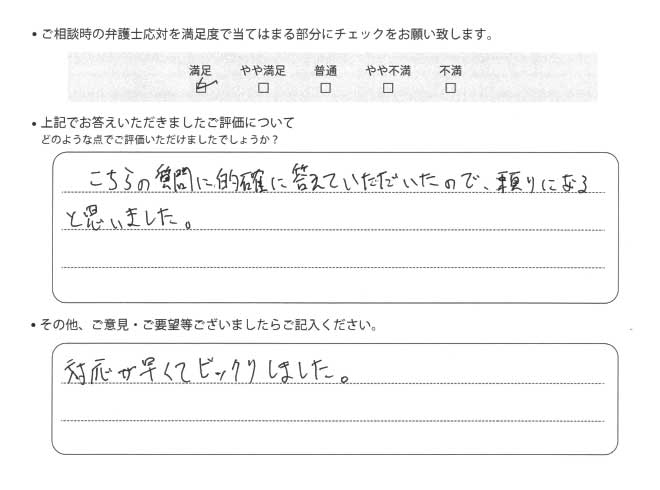 • ご相談時の弁護士応対を満足度で当てはまる部分にチェックをお願い致します。
満足 やや満足 普通 やや不満 不満
☑ □ □ □ □
• 上記でお答えいただきましたご評価について
どのような点でご評価いただけましたでしょうか？
こちらの質問に的確に答えていただいたので、頼りになる
と思いました。
• その他、ご意見・ご要望等ございましたらご記入ください。
対応が早くてビックリしました。